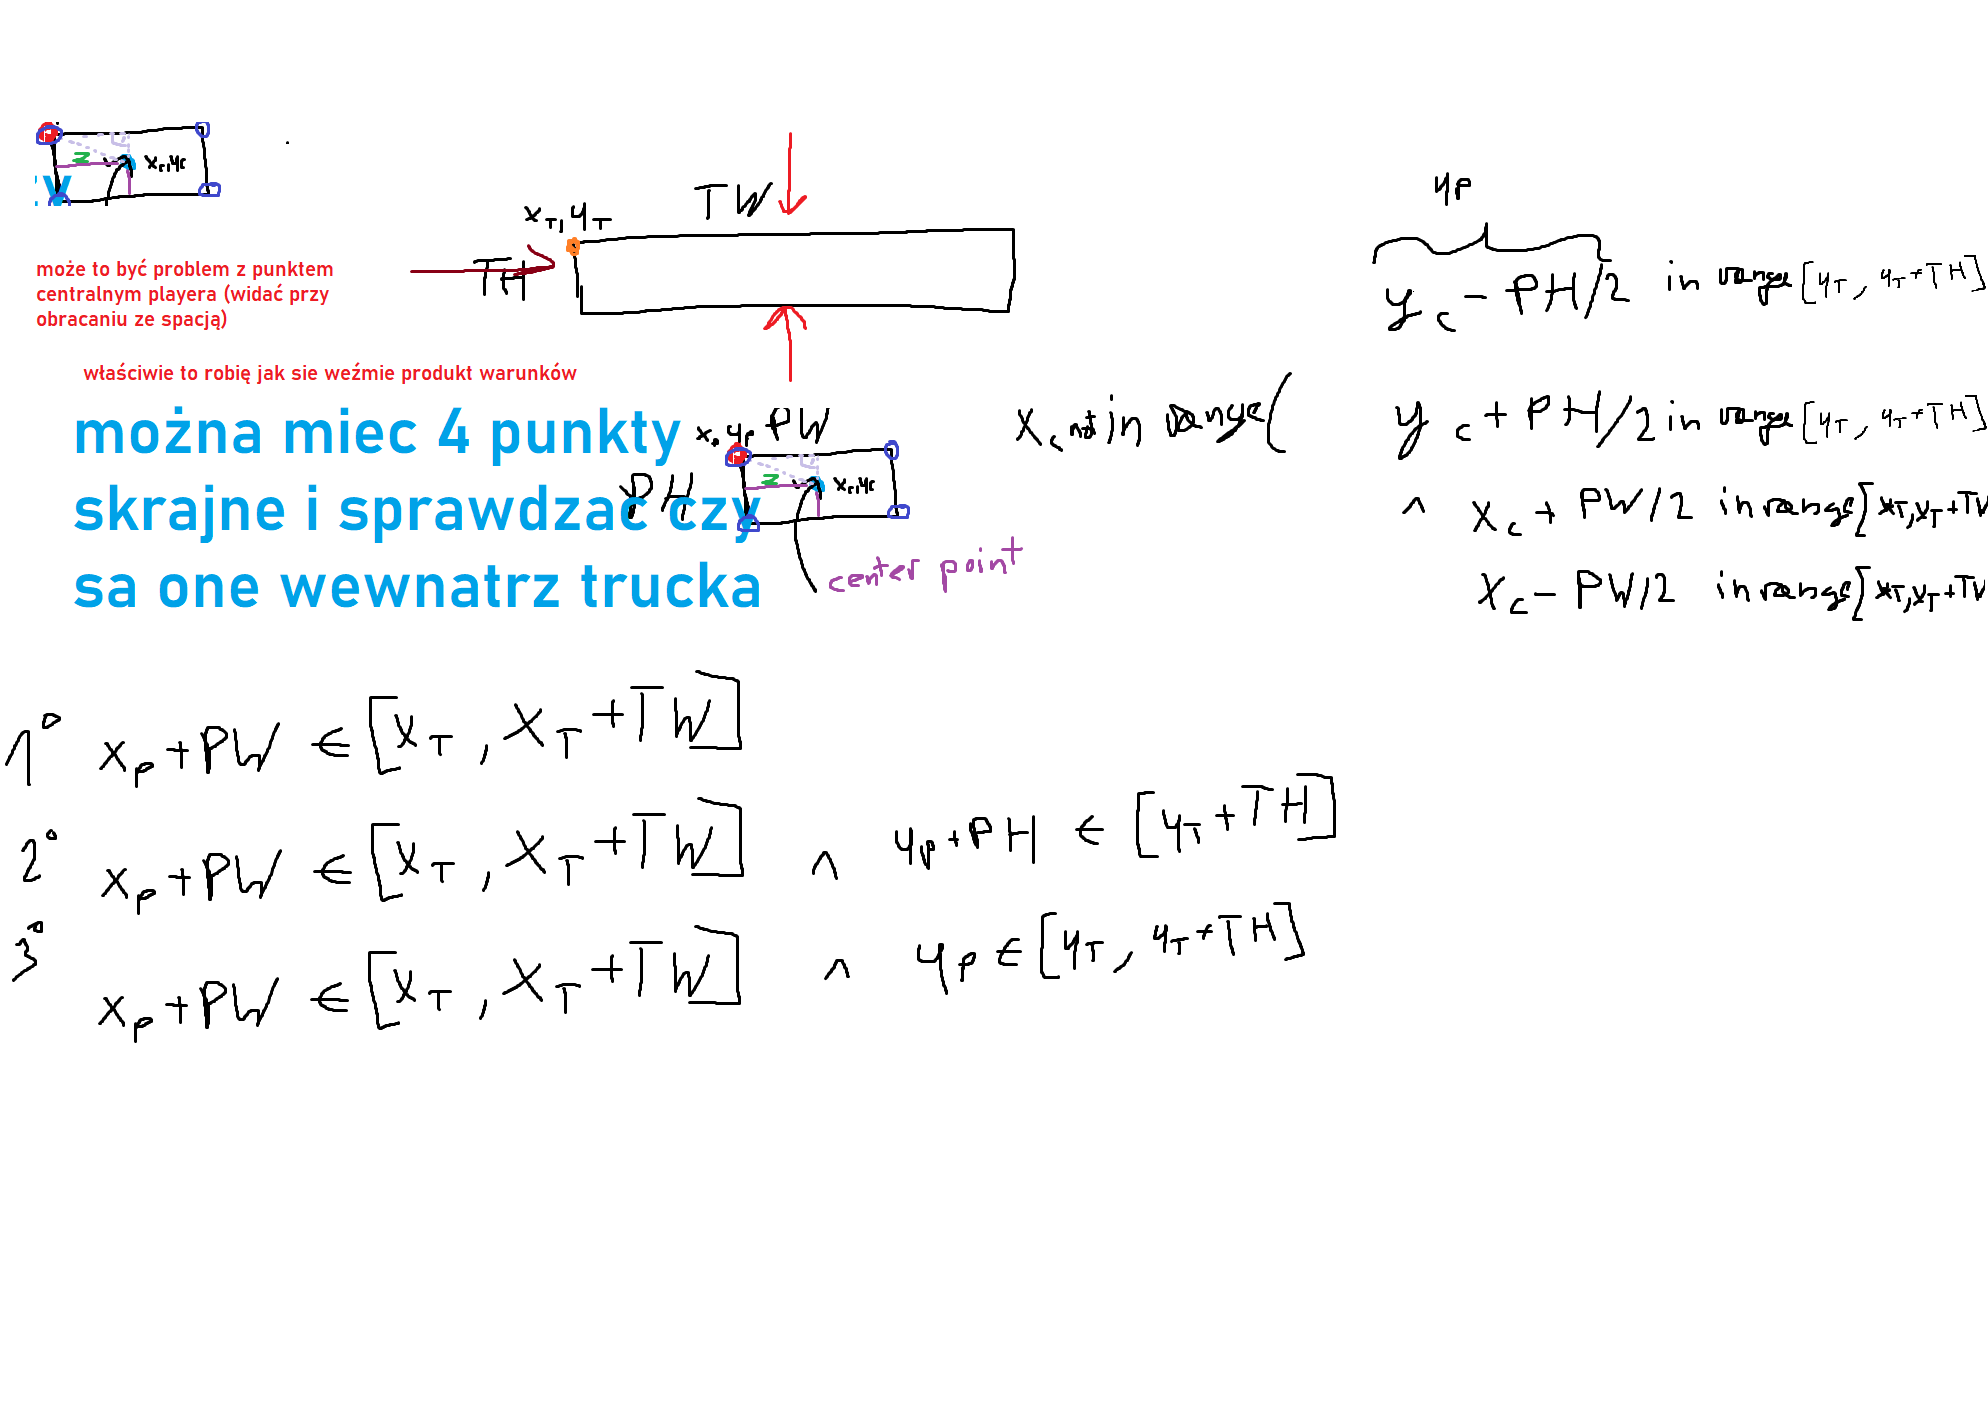 z xc,yc
zy
może to być problem z punktem
centralnym playera (widać przy
obracaniu ze spacją)
właściwie to robię jak sie weźmie produkt warunków
można miec 4 punkty
skrajne i sprawdzac czy
sa one wewnatrz trucka
xT, yT
TW
TH
xp, yp PW
PH
z xc,yc
center point
yp
yc - PH/2 in range [yT, yT+TH]
xc not in range (
yc + PH/2 in range [yT, yT+TH]
^ xc + PW/2 in range [xT, xT+TW
xc - PW/2 in range [xT, xT+TW
1° xp+PW ∈ [xT, xT+TW]
2° xp+PW ∈ [xT, xT+TW] ^ yp+PH ∈ [yT+TH]
3° xp+PW ∈ [xT, xT+TW] ^ yp ∈ [yT, yT+TH]